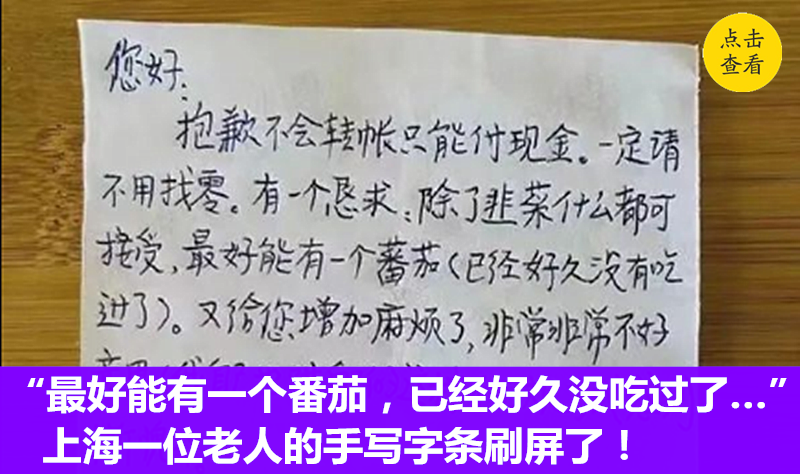 点击
查看
您好:
抱歉不会转帐只能付现金。一定请
不用找零。有一个恳求:除了韭菜什么都可
接受,最好能有一个蕃茄(已经好久没有吃
过了)。又给您增加麻烦了,非常非常不好
“最好能有一个番茄，已经好久没吃过了...”
上海一位老人的手写字条刷屏了！